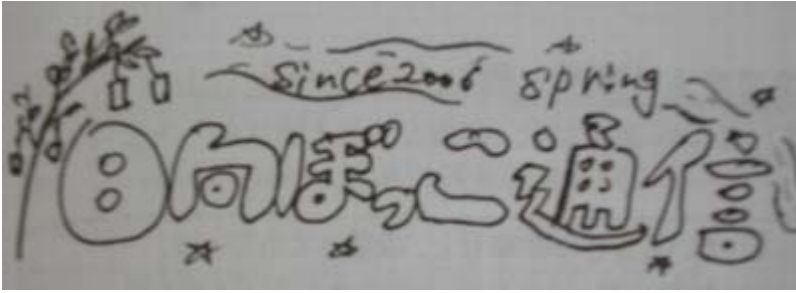 Since 2006 spring
日向ぼっこ通信